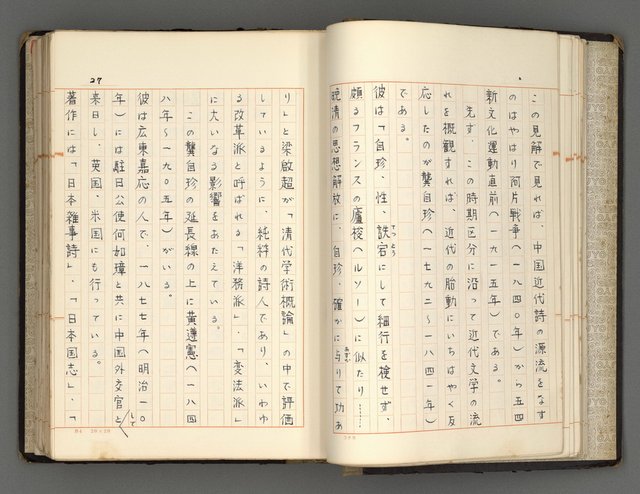 この見解で見れば、中国近代詩の源流をなす
のはやはり阿片戦争（一八四〇年）から五四
新文化運動直前（一九一五年）である。
先ず、この時期区分に沿って近代文学の流
れを概観すれば、近代の胎動にいちはやく反
応したのが龔自珍（一七九二～一八四一年）
である。
彼は「自珍、性、跌宕にして細行を検せず、
てっとう
頗るフランスの盧梭（ルソー）に似たり……
晩清の思想解放に、自珍、確かに与りて功あ
あずか
27
り」と梁啟超が「清代学術概論」の中で評価
しているように、純粋の詩人であり、いわゆ
る改革派と呼ばれる「洋務派」・「変法派」
に大いなる影響をあたえている。
この龔自珍の延長線の上に黄遵憲（一八四
八年～一九〇五年）がいる。
彼は広東嘉応の人で、一八七七年（明治一〇
年）には駐日公使何如璋と共に中国外交官と
して
来日し、英国、米国にも行っている。
著作には「日本雑事詩」、「日本国志」、「
20×20